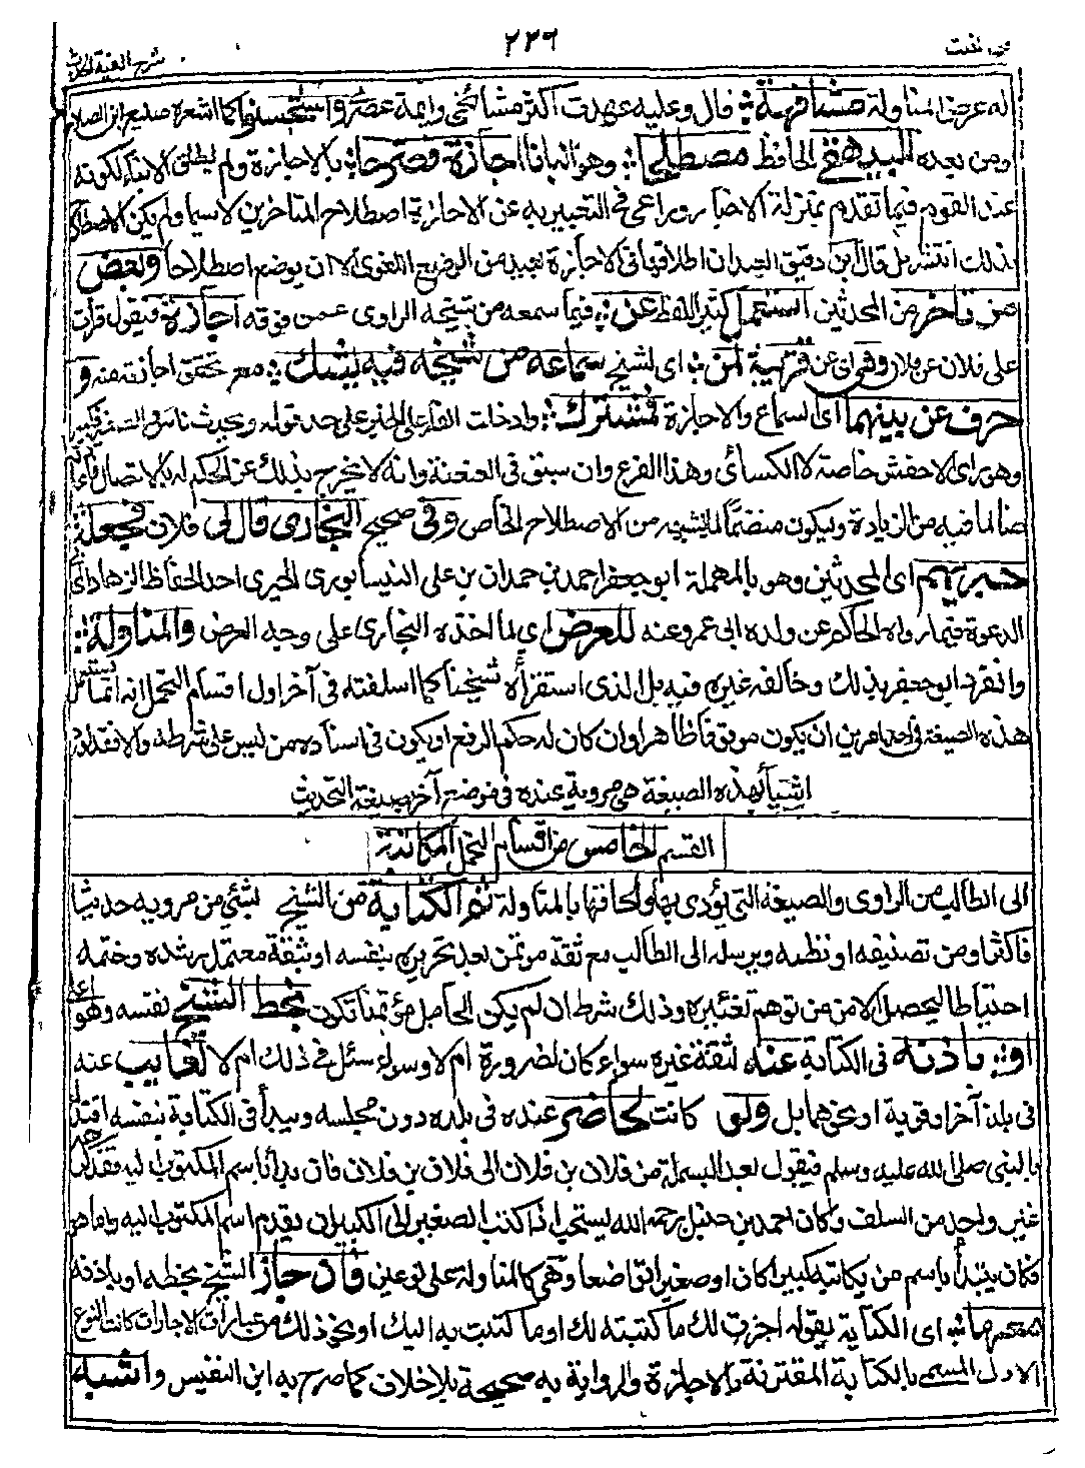 ٢٢٦
شرح الفية الحديث
له عرض المناولة مشافهة قال وعليه عهدت اكثر مشائخي وايمة عصره واستحسنوا كما اشعره صنيع ابن الصلاح
ومن بعده للبيهقي الحافظ مصطلحا وهو انبانا اجازة فصرحا بالاجازة ولم يطلق الانباء لكونه
عند القوم فيما تقدم بمنزلة الاخبار وراعى في التعبير به عن الاجازة اصطلاح المتاخرين لاسيما ولم يكن الاصطلاح
بذلك انتشر بل قال ابن دقيق العيد ان اطلاقها في الاجازة بعيد من الوضع اللغوي الا ان يوضع اصطلاحا وبعض
من تاخر من المحدثين استعمل كثيرا لفظ عن فيما سمعه من شيخه الراوي عمن فوقه اجازة فيقول قرات
على فلان عن فلان وهي قريبة لمن اي لشيخ سماعه من شيخه فيه يشك مع تحقق اجازته منه و
حرف عن بينهما اي السماع والاجازة فمشترك وادخلت الفاء على الخبر على حد قوله ويحدث ناس والصغير فيكبر
وهو راي الاخفش خاصة لا الكسائي وهذا الفرع وان سبق في العنعنة وانه لا يخرج بذلك عن الحكم له بالاتصال فاعاده
هنا لما فيه من الزيادة وليكون منضما لما يشبهه من الاصطلاح الخاص وفي صحيح البخاري قال لي فلان فجعله
حيريهم اي المحدثين وهو بالمهملة ابو جعفر احمد بن حمدان بن علي النيسابوري الحيري احد الحفاظ الزهاد المجابي
الدعوة فيما رواه الحاكم عن ولده ابي عمرو عنه للعرض اي لما اخذه البخاري على وجه العرض والمناولة
وانفرد ابو جعفر بذلك وخالفه غيره فيه بل الذي استقرأه شيخنا كما اسلفته في آخر اول اقسام التحمل انه انما يستعمل
هذه الصيغة في احد امرين ان يكون موقوفا ظاهرا وان كان له حكم الرفع او يكون في اسناده من ليس على شرطه والا فقد اورد
اشياء بهذه الصيغة هي مروية عنده في موضع آخر بصيغة التحديث
القسم الخامس من اقسام التحمل المكاتبة
الى الطالب من الراوي والصيغة التي يؤدي بها والحاقها بالمناولة ثم الكتابة من الشيخ بشئ من مرويه حديثا
فاكثر او من تصنيفه او نظمه ويرسله الى الطالب مع ثقة موتمن بعد تحريره بنفسه او بثقة معتمل وشده وختمه
احتياطا ليحصل الامن من توهم تغييره وذلك شرط ان لم يكن الحامل مؤتمنا تكون بخط الشيخ نفسه وهو اعلى
او باذنه في الكتابة عنه لثقة غيره سواء كان لضرورة ام لا وسواء سئل في ذلك ام لا لغايب عنه
في بلد آخر او قرية او نحوهما بل ولو كانت لحاضر عنده في بلده دون مجلسه ويبدأ في الكتابة بنفسه اقتداء
بالنبي صلى الله عليه وسلم فيقول بعد البسملة من فلان بن فلان الى فلان بن فلان فان بدأ باسم المكتوب اليه فقد كرهه
غير واحد من السلف وكان احمد بن حنبل رحمه الله يستحب اذا كتب الصغير الى الكبير ان يقدم اسم المكتوب اليه واما هو
فكان يبتدأ باسم من يكاتبه كبيرا كان او صغيرا تواضعا وهي كالمناولة على نوعين فان جاز الشيخ بخطه او باذنه
معها اي الكتابة بقوله اجزت لك ما كتبته لك او ما كتبت به اليك او نحو ذلك من عبارات الاجازات كانت النوع
الاول المسمى بالكتابة المقترنة بالاجازة والرواية به صحيحة بلا خلاف كما صرح به ابن النفيس واشبه